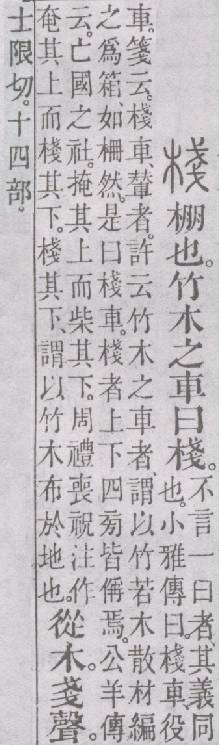 棧棚也。竹木之車曰棧。
不言一曰者、其義同
也。小雅傳曰。棧車役
車。箋云。棧車、輦者。許云竹木之車者、謂以竹若木散材編
之爲箱、如柵然。是曰棧車。棧者上下四㫄皆偁焉。公羊傳
云。亡國之社。掩其上而柴其下。周禮喪祝注作
奄其上而棧其下。棧其下、謂以竹木布於地也。
從木。戔聲。
士限切。十四部。